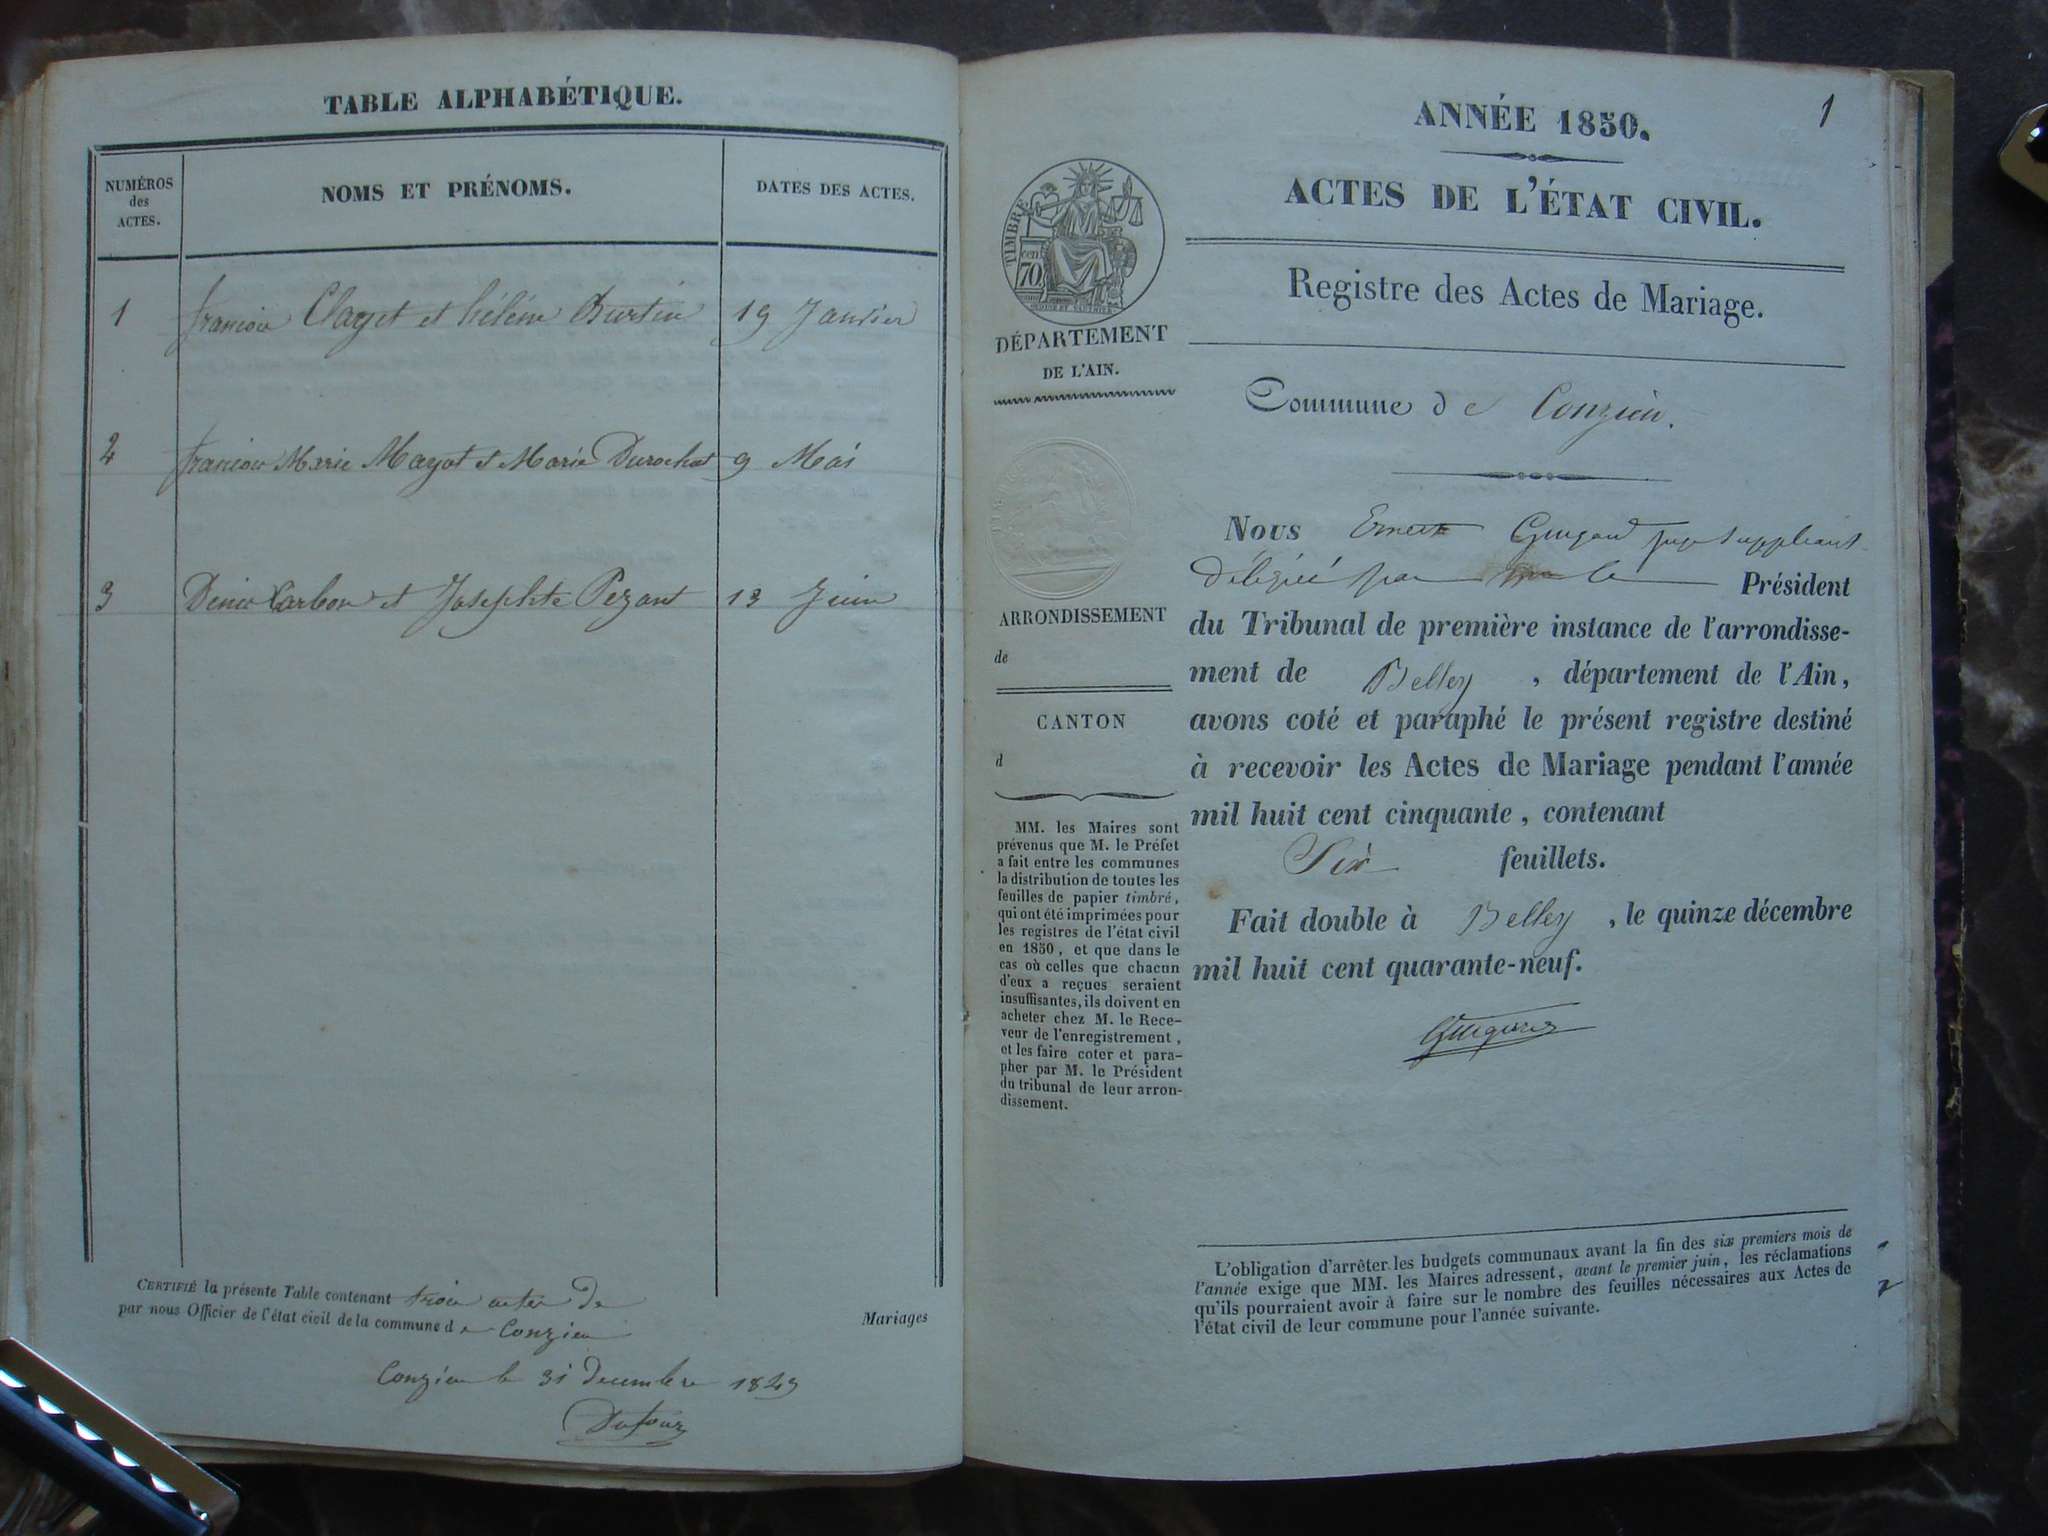 TABLE ALPHABÉTIQUE.
NUMÉROS
des
ACTES.
NOMS ET PRÉNOMS.
DATES DES ACTES.
1 françois Clayet et hélène Burtin 19 Janvier
2 françois Marie Mayot et Marie Durochat 9 Mai
3 Denis Carbon et Josephte Pezant 13 Juin
CERTIFIÉ la présente Table contenant trois actes de
Mariages
par nous Officier de l'état civil de la commune d e Conzieu
Conzieu le 31 Decembre 1849
Dufour
1
ANNÉE 1850.
ACTES DE L'ÉTAT CIVIL.
Registre des Actes de Mariage.
TIMBRE
cen
70
DÉPARTEMENT
DE L'AIN.
ARRONDISSEMENT
de
CANTON
d
MM. les Maires sont
prévenus que M. le Préfet
a fait entre les communes
la distribution de toutes les
feuilles de papier timbré,
qui ont été imprimées pour
les registres de l'état civil
en 1850, et que dans le
cas où celles que chacun
d'eux a reçues seraient
insuffisantes, ils doivent en
acheter chez M. le Rece-
veur de l'enregistrement,
et les faire coter et para-
pher par M. le Président
du tribunal de leur arron-
dissement.
Commune d e Conzieu.
Nous Ernest juge suppléant
délégué par le Président
du Tribunal de première instance de l'arrondisse-
ment de Belley, département de l'Ain,
avons coté et paraphé le présent registre destiné
à recevoir les Actes de Mariage pendant l'année
mil huit cent cinquante, contenant
Six feuillets.
Fait double à Belley, le quinze décembre
mil huit cent quarante-neuf.
L'obligation d'arrêter les budgets communaux avant la fin des six premiers mois de
l'année exige que MM. les Maires adressent, avant le premier juin, les réclamations
qu'ils pourraient avoir à faire sur le nombre des feuilles nécessaires aux Actes de
l'état civil de leur commune pour l'année suivante.